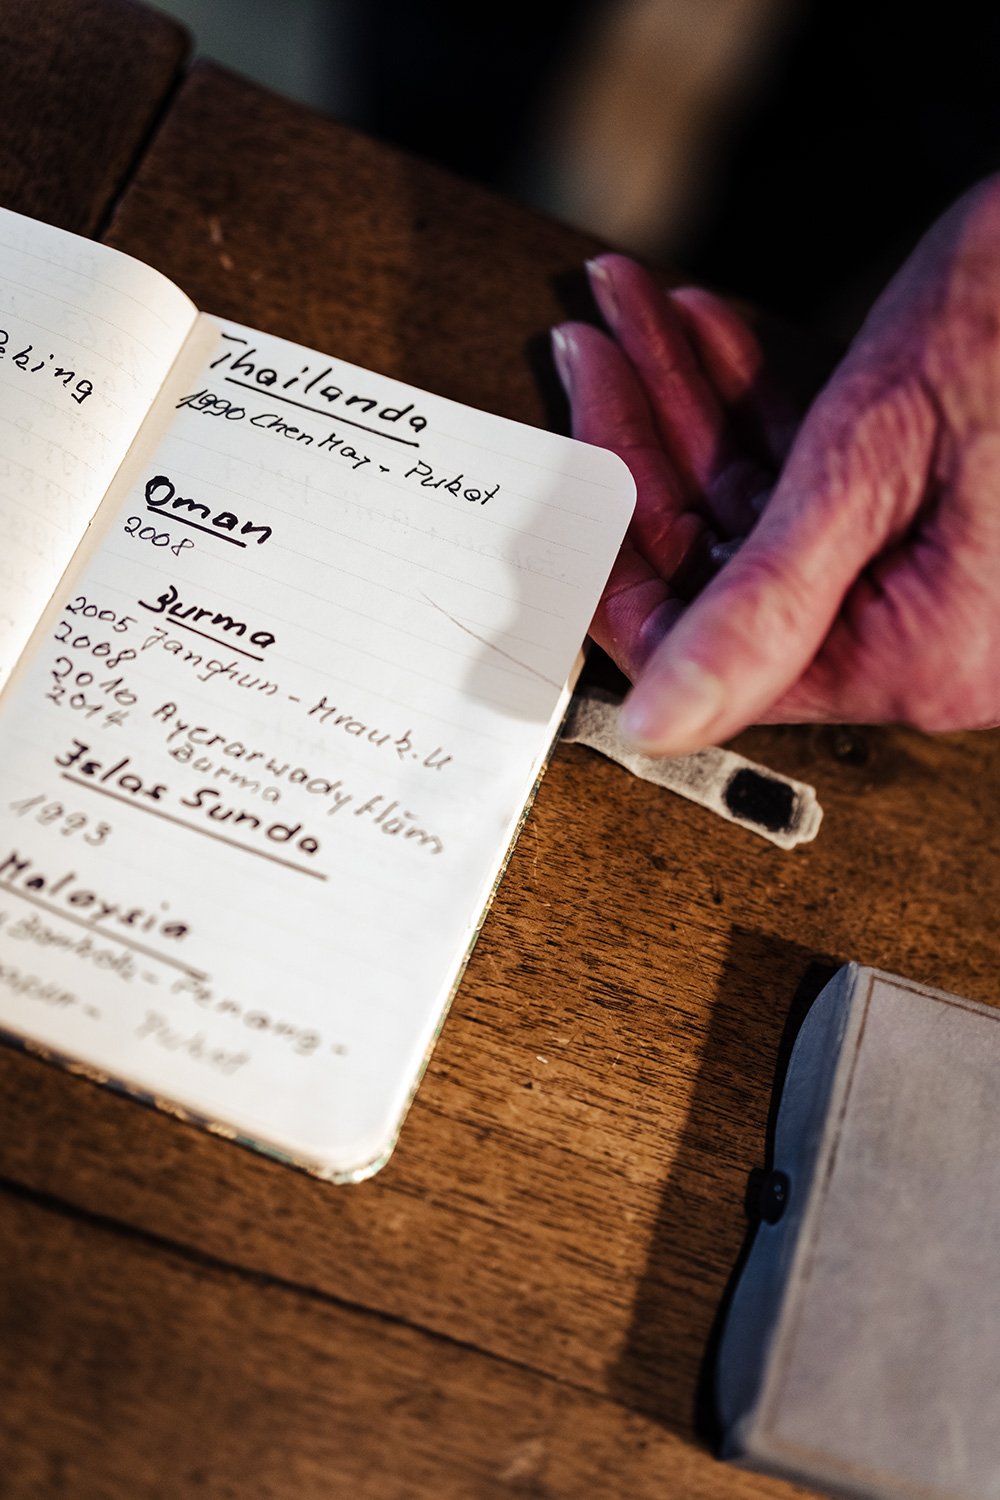 eking
Thailanda
1990 Chen May - Puket
Oman
2008
Burma
2005 Janghun - Mrauk.U
2008
2010 Ayerarwady flām
2014 Burma
Islas Sunda
1993
Malaysia
Bankok - Penang -
Puket